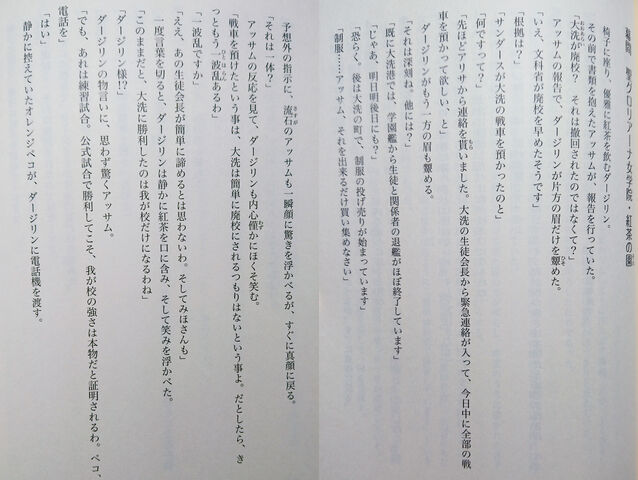 聖グロリアーナ女学院・紅茶の園
椅子に座り、優雅に紅茶を飲むダージリン。
その前で書類を抱えたアッサムが、報告を行っていた。
「大洗が廃校？　それは撤回されたのではなくて？」
アッサムの報告で、ダージリンが片方の眉だけを顰めた。
「いえ、文科省が廃校を早めたそうです」
「根拠は？」
「サンダースが大洗の戦車を預かったのと」
「何ですって？」
「先ほどアリサから連絡を貰いました。大洗の生徒会長から緊急連絡が入って、今日中に全部の戦
車を預かって欲しい、と」
ダージリンがもう一方の眉も顰める。
「それは深刻ね。他には？」
「既に大洗港では、学園艦から生徒と関係者の退艦がほぼ終了しています」
「じゃあ、明日明後日にも？」
「恐らく。後は大洗の町で、制服の投げ売りが始まっています」
「制服……アッサム、それを出来るだけ買い集めなさい」
予想外の指示に、流石のアッサムも一瞬顔に驚きを浮かべるが、すぐに真顔に戻る。
「それは一体？」
アッサムの反応を見て、ダージリンも内心僅かにほくそ笑む。
「戦車を預けたという事は、大洗は簡単に廃校にされるつもりはないという事よ。だとしたら、き
っともう一波乱あるわ」
「一波乱ですか」
「ええ、あの生徒会長が簡単に諦めるとは思わないわ。そしてみほさんも」
一度言葉を切ると、ダージリンは静かに紅茶を口に含み、そして笑みを浮かべた。
「このままだと、大洗に勝利したのは我が校だけになるわね」
「ダージリン様!?」
ダージリンの物言いに、思わず驚くアッサム。
「でも、あれは練習試合。公式試合で勝利してこそ、我が校の強さは本物だと証明されるわ。ペコ、
電話を」
「はい」
静かに控えていたオレンジペコが、ダージリンに電話機を渡す。